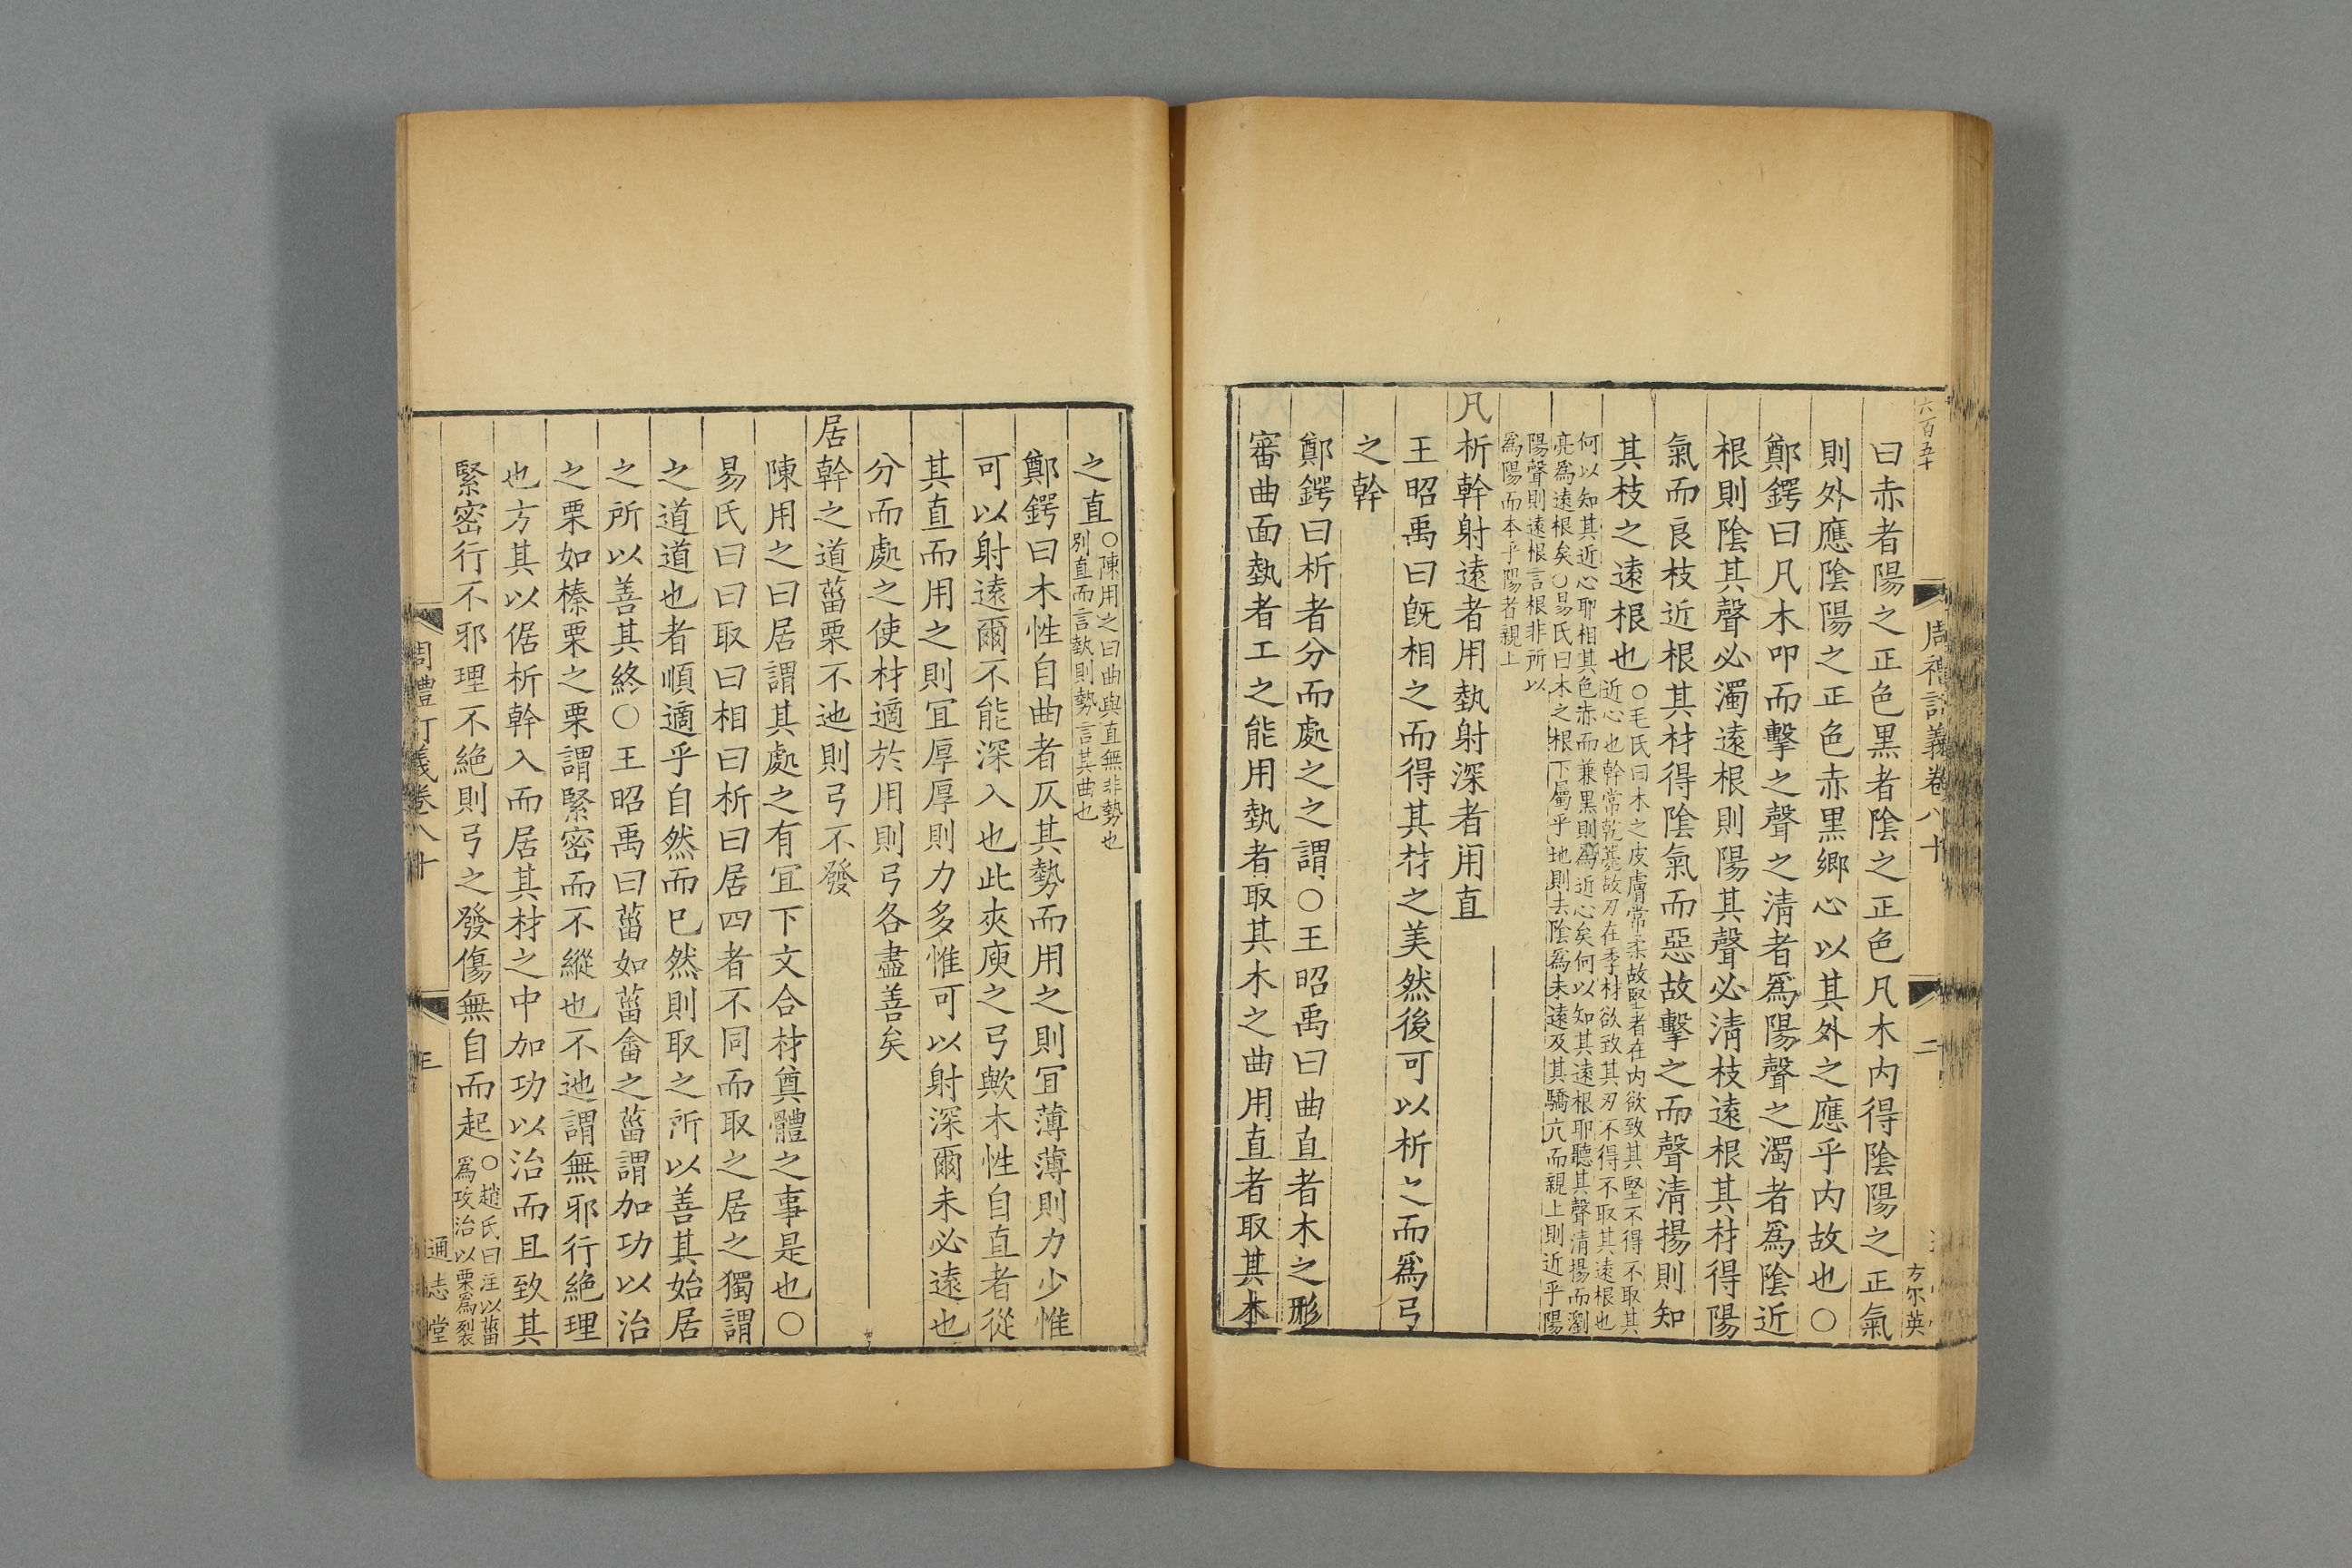 六百五十
周禮訂義卷八十
二
方尔英
曰赤者陽之正色黒者陰之正色凡木内得陰陽之正氣
則外應陰陽之正色赤黒鄉心以其外之應乎内故也○
鄭鍔曰凡木叩而擊之聲之清者爲陽聲之濁者爲陰近
根則陰其聲必濁遠根則陽其聲必清枝遠根其材得陽
氣而良枝近根其材得陰氣而惡故擊之而聲清揚則知
其枝之遠根也○毛氏曰木之皮膚常柔故堅者在内欲致其堅不得不取其
近心也幹常乾薨故刃在季材欲致其刃不得不取其遠根也
何以知其近心耶相其色赤而兼黒則爲近心矣何以知其遠根耶聽其聲清揚而瀏
亮爲遠根矣○易氏曰木之根下屬乎地則去陰爲未遠及其驕亢而親上則近乎陽
陽聲則遠根言根非所以
爲陽而本乎陽者親上
凡析幹射遠者用埶射深者用直
王昭禹曰旣相之而得其材之美然後可以析之而爲弓
之幹
鄭鍔曰析者分而處之之謂○王昭禹曰曲直者木之形
審曲面埶者工之能用埶者取其木之曲用直者取其木
之直○陳用之曰曲與直無非勢也
別直而言埶則勢言其曲也
鄭鍔曰木性自曲者仄其勢而用之則冝薄薄則力少惟
可以射遠爾不能深入也此夾庾之弓歟木性自直者從
其直而用之則冝厚厚則力多惟可以射深爾未必遠也
分而處之使材適於用則弓各盡善矣
居幹之道菑栗不迆則弓不發
陳用之曰居謂其處之有冝下文合材奠體之事是也○
易氏曰曰取曰相曰析曰居四者不同而取之居之獨謂
之道道也者順適乎自然而已然則取之所以善其始居
之所以善其終○王昭禹曰菑如菑畬之菑謂加功以治
之栗如榛栗之栗謂緊密而不縱也不迆謂無邪行絶理
也方其以倨析幹入而居其材之中加功以治而且致其
緊密行不邪理不絶則弓之發傷無自而起○趙氏曰注以菑
爲攻治以栗爲裂
周禮訂義卷八十
三
通志堂